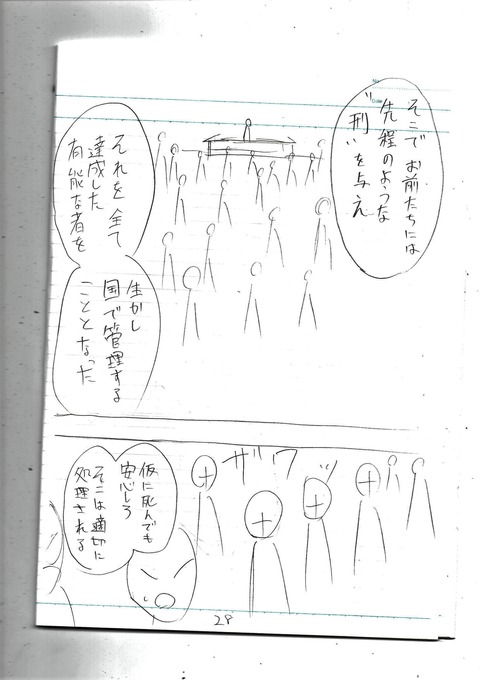 そこで お前たちには
先程のような
"刑"を与え
それを全て
達成した
有能な者を
生かし
国で管理する
こととなった
ザワッ
仮に死んでも
安心しろ
そこは適切に
処理される
28
No.
Date